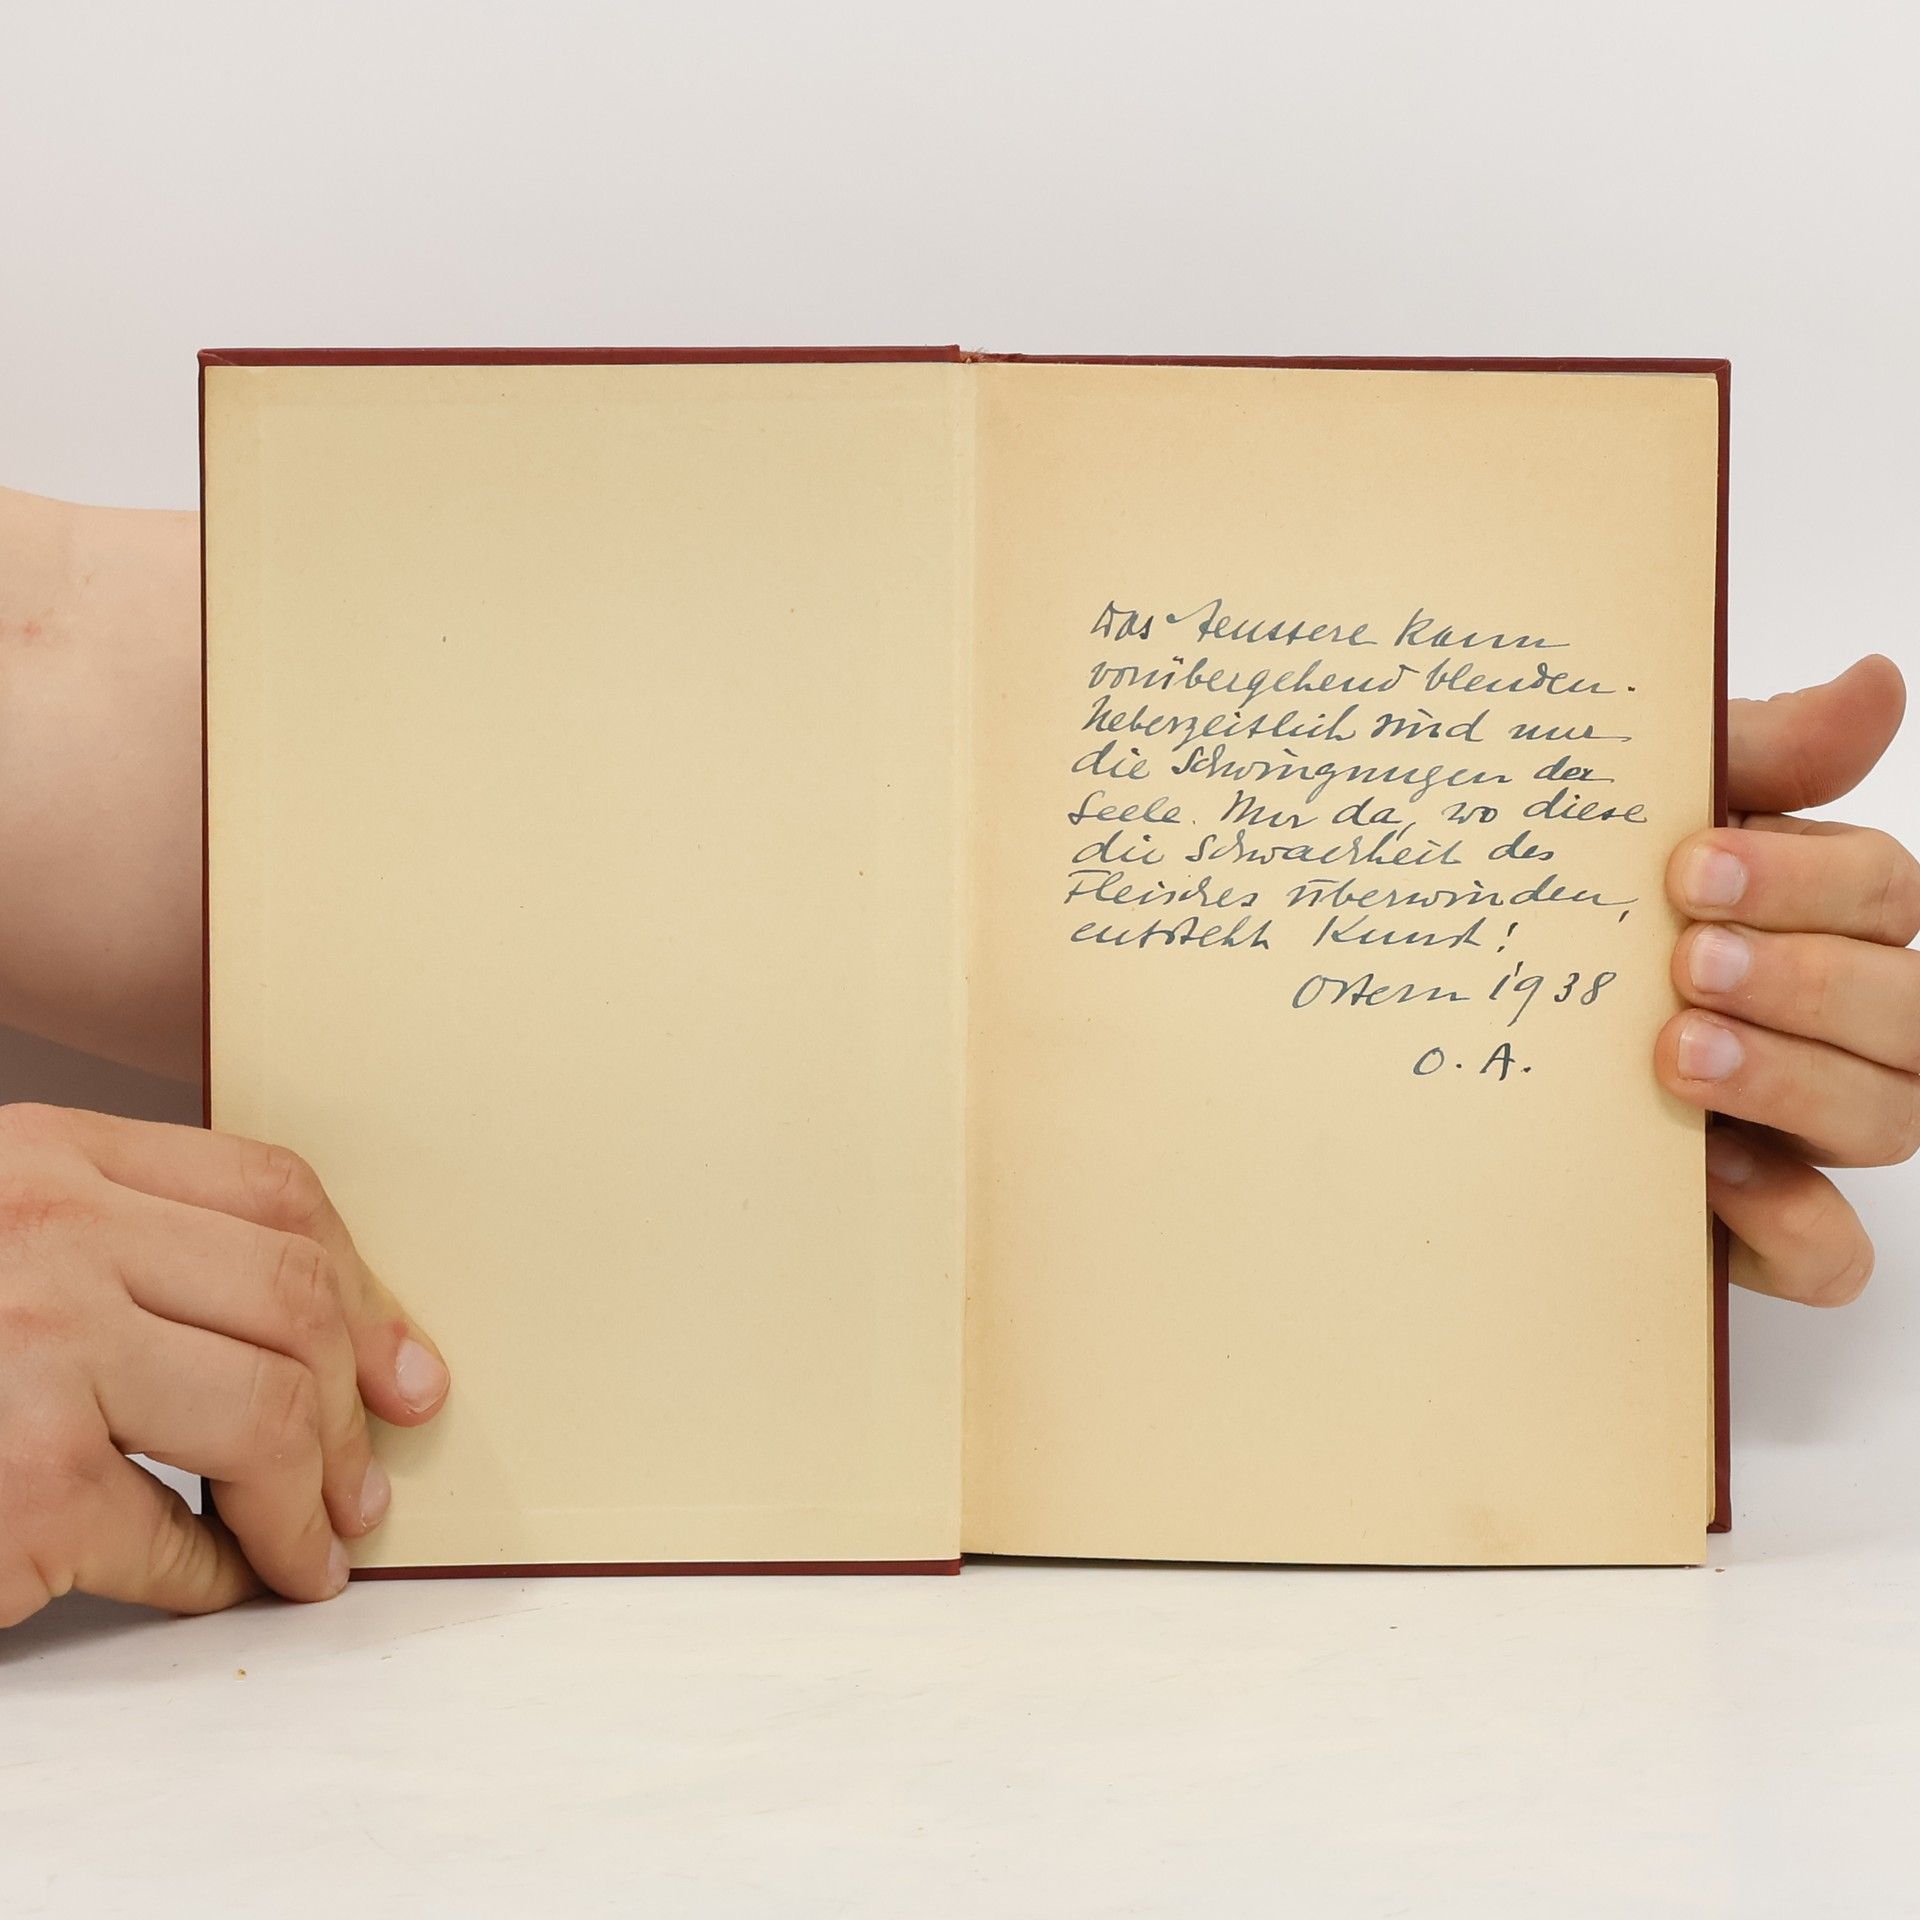 Das Aeussere kann
vorübergehend blenden.
Ueberzeitlich sind nur
die Schwingungen der
Seele. Nur da, wo diese
die Schwachheit des
Fleisches überwinden,
entsteht Kunst!
Ostern 1938
O. A.